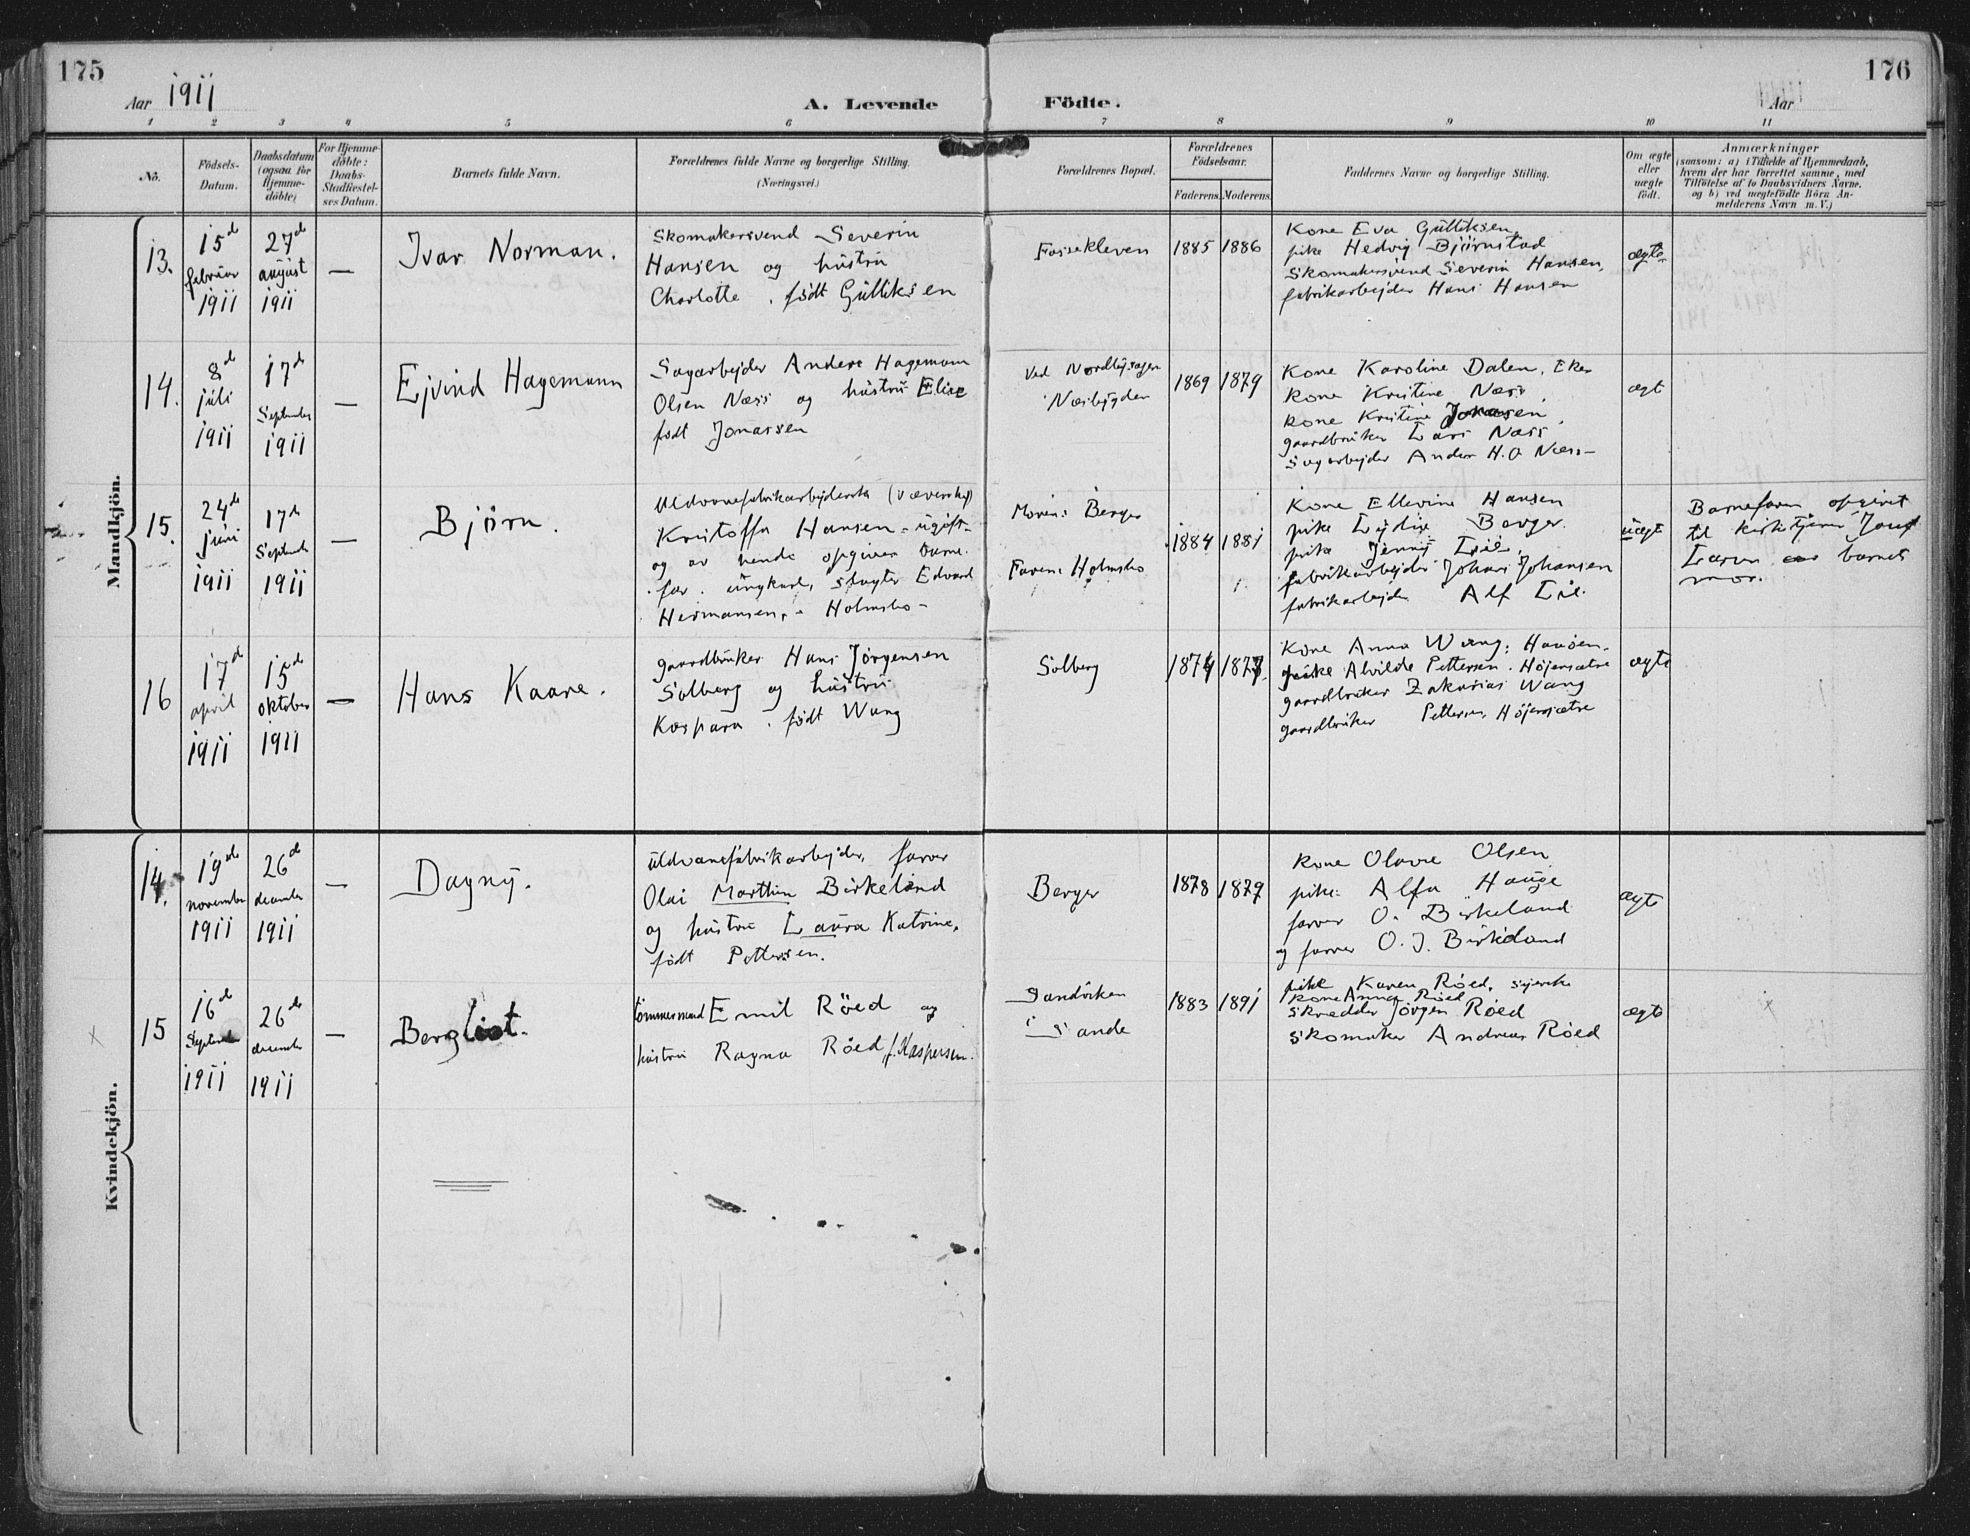 175
Aar 1911
A. Levende
Födte.
Aar
176
1 2 3 4 5 6 7 8 9 10 11
No.
Födsels-
Datum.
Daabsdatum
(ogsaa for
Hjemme-
döbte)
For Hjemme-
döbte:
Daabs-
Stadfæstel-
ses Datum.
Barnets fulde Navn.
Forældrenes fulde Navne og borgerlige Stilling.
(Næringsvei.)
Forældrenes Bopæl.
Forældrenes
Födselsaar.
Faderens.
Moderens.
Faddernes Navne og borgerlige Stilling.
Om ægte
eller
uægte
födt.
Anmærkninger
(saasom: a) i Tilfælde af Hjemmedaab,
hvem der har forrettet samme, med
Tilföielse af to Daabsvidners Navne.
og b) ved uægtefödte Börn An-
melderens Navn m. V.)
Mandkjön.
13.
15de
februar
1911
27de
august
1911
—
Ivar Norman.
Skomakersvend Severin
Hansen og hustru
Charlotte . født Gulliksen
Fossekleven
1885
1886
Kone Eva Gulliksen,
pike Hedvig Björnstad
Skomakersvend Severin Hansen,
fabrikarbejder Hans Hansen
ægte
14.
8de
juli
1911
17de
September
1911
—
Ejvind Hagemann
Sagarbejder Anders Hagemann
Olsen Næss og hustru Elise
født Jonassen
Ved Nordbysagen
Næsbygden
1869
1879
Kone Karoline Dalen, Eker
Kone Kristine Næss,
Kone Kristine Jonassen,
gaardbruker Lars Næss
Sagarbejder Anders H.O Næss—
ægt
15.
24de
juni
1911
17de
September
1911
—
Björn.
Kristoffa Hansen - ugift-
og av hende opgiven barne-
far . ungkarl, slagter Edvard
Hermansen, - Holmsbo -
Morens Berger
Farens Holmsbo
1884
1881
Kone Ellevine Hansen
pike Lydia Berger.
pike Jenny Lie,
fabrikarbejder Johan Johansen
fabrikarbejder Alf Lie.
uægte
Barnefaren opgivet
til kirketjener
Larsen av barnets
mor.
16
17de
april
1911
15de
oktober
1911
—
Hans Kaare.
gaardbruker Hans Jörgensen
Solberg og hustru
Kaspara . født Wang
Solberg
1874
1877
Kone Anna Wang, Hansen.
pike Alvilde Pettersen. Höjensætre
gaardbruker Zakarias Wang
gaardbruker Pettersen, Höjensætre
ægte
Kvindekjön.
14.
19de
november
1911
26de
december
1911
—
Dagny.
Uldvarefabrikarbejder, farver
Olai Martin Birkeland
og hustru Laura Katrine,
født Pettersen.
Berger
1878
1879
Kone Olava Olsen
pike Alfa Hauge
farver O. Birkeland
og farver O. J. Birkeland
ægte
15
16de
September
1911
26de
december
1911
—
Bergliot.
tömmermand Emil Röed og
hustru Ragna Röed f. Kaspersen.
Sandviken
i Sande
1883
1891
pike Karen Röed, syerske
Kone Anna Röed
Skrædder Jörgen Röed
Skomaker Andreas Röed
ægte